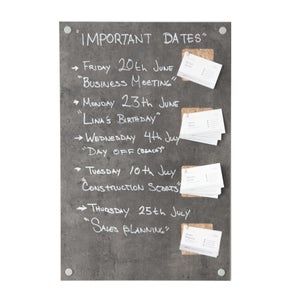 "IMPORTANT DATES"
→ FRIDAY 20TH JUNE
"BUSINESS MEETING"
→ MONDAY 23TH JUNE
"LINA'S BIRTHDAY"
→ WEDNESDAY 4TH JULY
"DAY OFF (BEACH)"
→ TUESDAY 10TH JULY
"CONSTRUCTION SCOOTS"
→ THURSDAY 25TH JULY
"SALES PLANNING"